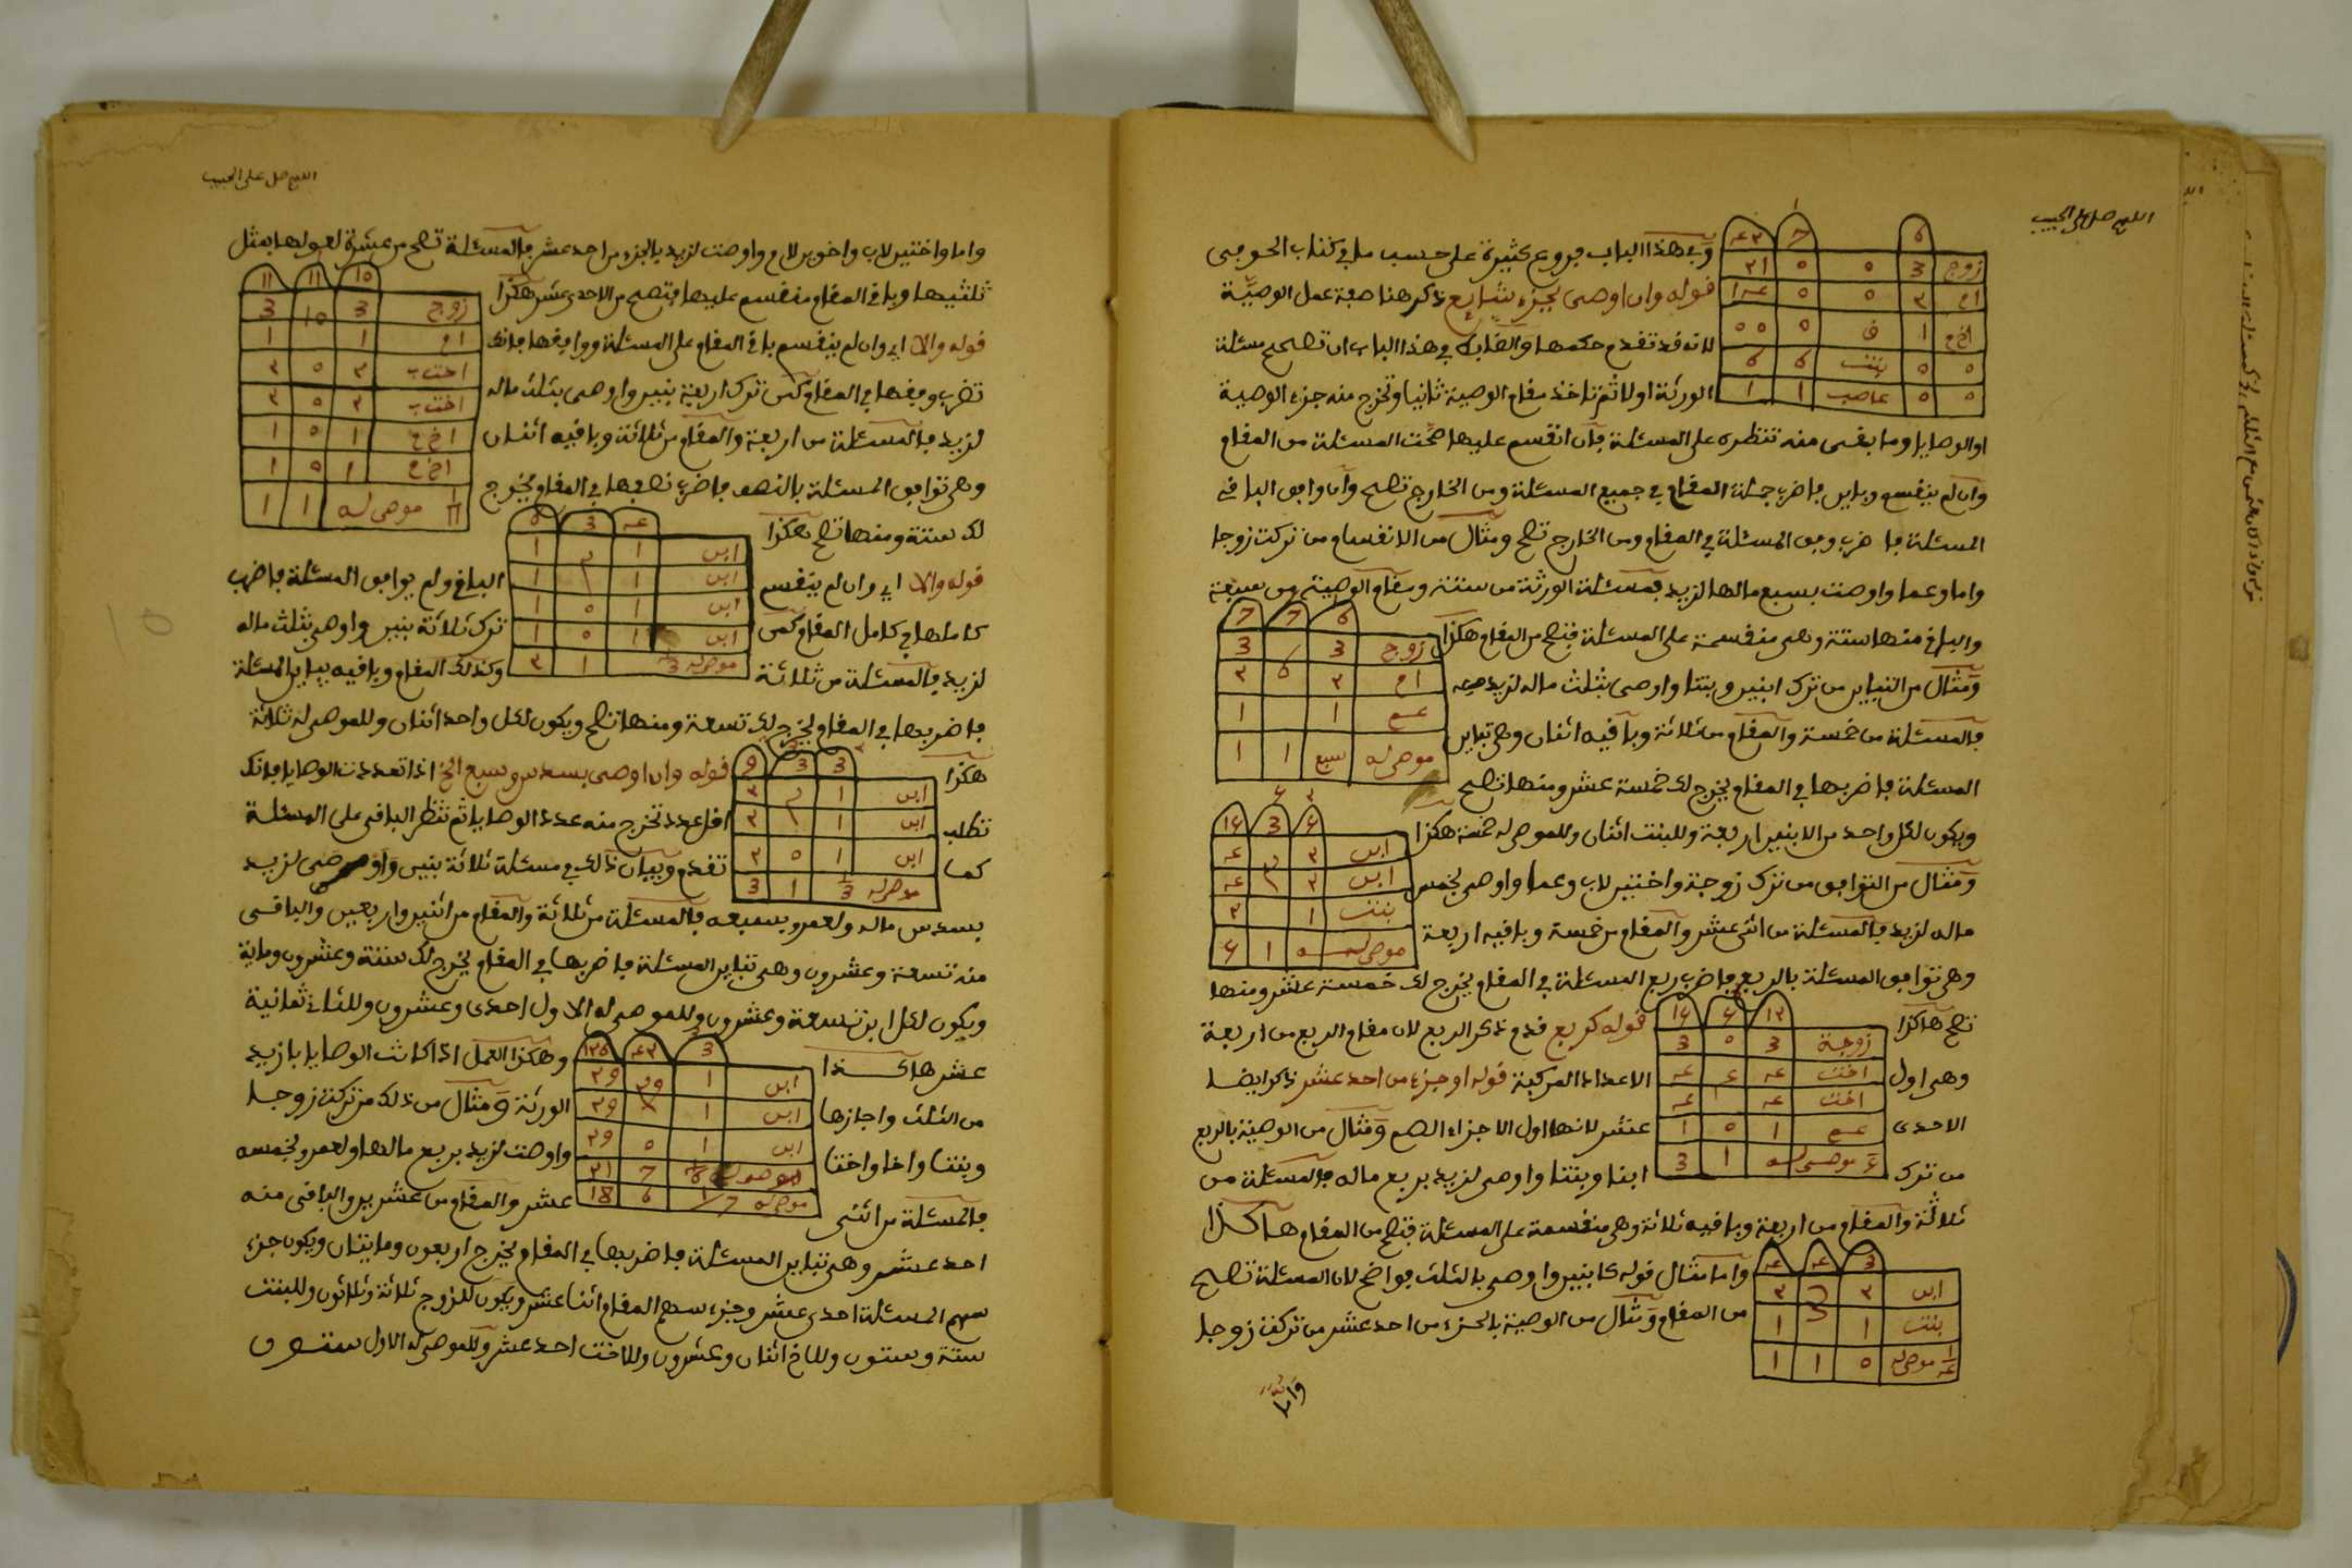 اللهم صل على الحبيب
وفي هذا الباب فروع كثيرة على حسب ما في كتاب الحوفي
قوله وان اوصى بجزء شايع ذكر هنا صفة عمل الوصية
لانه قد تقدم حكمها والضابط في هذا الباب ان تصحح مسئلة
الورثة اولا ثم تاخذ مقام الوصية ثانيا وتخرج منه جزء الوصية
زوج 3 ٥ ٥ ٢١
ام ٢ ٥ ٥ ١٤
اخ م 1 ف ٥ ٥٥
٥ ٥ بنت 6 6
٥ ٥ عاصب 1 1
او الوصايا وما بقي منه تنظره على المسئلة فان انقسم عليها صحت المسئلة من المقام
وان لم ينقسم وباين فاضرب جملة المقام في جميع المسئلة ومن الخارج تصح وان وافق الباقي
المسئلة فاضرب وفق المسئلة في المقام ومن الخارج تصح ومثال من الانقسام من تركت زوجا
واما وعما واوصت بسبع مالها لزيد فمسئلة الورثة من ستة ومقام الوصية من سبعة
والباقي منها ستة وهي منقسمة على المسئلة فتصح من المقام هكذا
6 7 7
زوج 3 3
ام ٢ 6 ٢
عم 1 1
موصى له سبع 1 1
ومثال من التباين من ترك ابنين وبنتا واوصى بثلث ماله لزيد
فالمسئلة من خمسة والمقام من ثلاثة وباقيه اثنان وهي تباين
المسئلة فاضربها في المقام يخرج لك خمسة عشر ومنها تصح
ويكون لكل واحد من الابنين اربعة وللبنت اثنان وللموصى له خمسة هكذا
ابن ٢
ابن ٢
بنت 1 ٢
موصى له 1
ومثال من التوافق من ترك زوجة واختين لاب وعما واوصى بخمس
ماله لزيد فالمسئلة من اثنى عشر والمقام من خمسة وباقيه اربعة
وهي توافق المسئلة بالربع فاضرب ربع المسئلة في المقام يخرج لك خمسة عشر ومنها
تصح هاكذا
زوجة 3 ٥ 3
اخت
اخت
عم 1 ٥ 1
موصى له 1 3
قوله كربع قدم ذكر الربع لان مقام الربع من اربعة
وهي اول الاعداد المركبة قوله او جزء من احد عشر ذكر ايضا
الاحدى عشر لانها اول الاجزاء الصم ومثال من الوصية بالربع
من ترك ابنا وبنتا واوصى لزيد بربع ماله فالمسئلة من
ثلاثة والمقام من اربعة وباقيه ثلاثة وهي منقسمة على المسئلة فتصح من المقام هاكذا
ابن ٢ ٢
بنت 1 3 1
موصى له ٥ 1 1
واما مثال قوله كابنين واوصى بالثلث فواضح لان المسئلة تصح
من المقام ومثال من الوصية بالجزء من احد عشر من تركت زوجا
اللهم صل على الحبيب
واما واختين لاب واخوين لام واوصت لزيد بالجزء من احد عشر فالمسئلة تصح من عشرة لعولها بمثل
ثلثيها وباقي المقام منقسم عليها فتصح من الاحدى عشر هكذا
10 11 11
زوج 3 10 3
ام 1 1
اخت ب ٢ ٥ ٢
اخت ب ٢ ٥ ٢
اخ م 1 ٥ 1
اخ م 1 ٥ 1
موصى له 1 1
قوله والا اي وان لم ينقسم باقي المقام على المسئلة ووافقها فانك
تضرب وفقها في المقام كمن ترك اربعة بنين واوصى بثلث ماله
لزيد فالمسئلة من اربعة والمقام من ثلاثة وباقيه اثنان
وهي توافق المسئلة بالنصف فاضرب نصفها في المقام يخرج
لك ستة ومنها تصح هكذا
ابن 1 ٢ 1
ابن 1 1
ابن 1 ٥ 1
ابن 1 ٥ 1
موصى له 1 ٢
قوله والا اي وان لم ينقسم الباقي ولم يوافق المسئلة فاضرب
كاملها في كامل المقام كمن ترك ثلاثة بنين واوصى بثلث ماله
لزيد فالمسئلة من ثلاثة وكذلك المقام وباقيه يباين المسئلة
فاضربها في المقام يخرج لك تسعة ومنها تصح ويكون لكل واحد اثنان وللموصى له ثلاثة
هكذا
3 3 9
ابن 1 ٢ ٢
ابن 1 ٢
ابن 1 ٥ ٢
موصى له 1 3
قوله وان اوصى بسدس وسبع الخ اذا تعددت الوصايا فانك
تطلب اقل عدد تخرج منه عدد الوصايا ثم تنظر الباقي على المسئلة
كما تقدم وبيان ذلك في مسئلة ثلاثة بنين واوصى لزيد
بسدس ماله ولعمرو بسبعه فالمسئلة من ثلاثة والمقام من اثنين واربعين والباقي
منه تسعة وعشرون وهي تباين المسئلة فاضربها في المقام يخرج لك ستة وعشرون ومائة
ويكون لكل ابن تسعة وعشرون وللموصى له الاول احدى وعشرون وللثاني ثمانية
عشر هاكذا
3 ٤٢ ١٢6
ابن 1 ٢9 ٢9
ابن 1 ٢9
ابن 1 ٥ ٢9
موصى له 7 ٢1
موصى له 6 18
وهكذا العمل اذا كانت الوصايا بازيد
من الثلث واجازها الورثة ومثال من ذلك من تركت زوجا
وبنتا واخا واختا واوصت لزيد بربع مالها ولعمرو بخمسه
فالمسئلة من اثنى عشر والمقام من عشرين والباقي منه
احد عشر وهي تباين المسئلة فاضربها في المقام يخرج اربعون ومايتان ويكون جزء
سهم المسئلة احدى عشر وجزء سهم المقام اثنا عشر ويكون للزوج ثلاثة وثلاثون وللبنت
ستة وستون وللاخ اثنان وعشرون وللاخت احد عشر وللموصى له الاول ستون